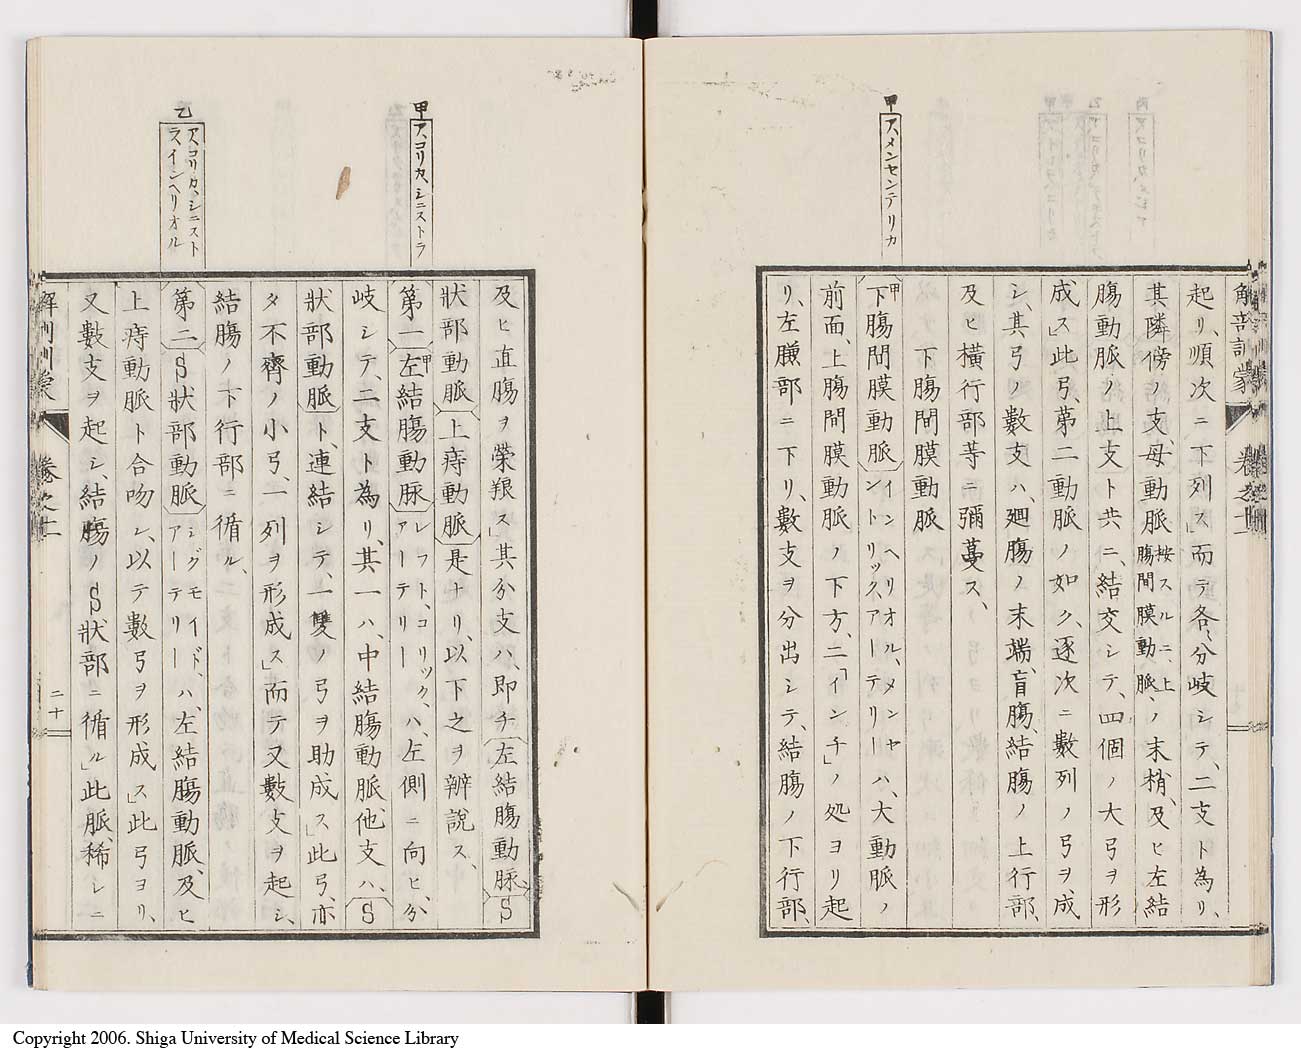 甲 ア、メンセンテリカ
解剖訓蒙 卷之十一
起リ、順次ニ下列ス」而テ各〻分岐シテ、二支ト為リ、
其隣傍ノ支、母動脈按スルニ、上腸間膜動脈、ノ末梢、及ヒ左結
腸動脈ノ上支ト共ニ、結交シテ、四個ノ大弓ヲ形
成ス」此弓、第二動脈ノ如ク、逐次ニ數列ノ弓ヲ成
シ、其弓ノ數支ハ、廻腸ノ末端、盲腸、結腸ノ上行部、
及ヒ横行部等ニ彌蔓ス、
下腸間膜動脈
甲下腸間膜動脈インヘリオル、メンヤントリック、アーテリーハ、大動脈ノ
前面、上腸間膜動脈ノ下方、二「インチ」ノ処ヨリ起
リ、左臁部ニ下リ、數支ヲ分出シテ、結腸ノ下行部、
甲 ア、コリカ、シニストラ
乙 ア、コリカ、シニスト
ラ、インヘリオル
及ヒ直腸ヲ榮養ス」其分支ハ、即チ左結腸動脈、S
狀部動脈上痔動脈是ナリ、以下之ヲ辨説ス、
第一甲左結腸動脈レフト、コリック、アーテリーハ、左側ニ向ヒ、分
岐シテ、二支ト為リ、其一ハ、中結腸動脈、他支ハ、S
狀部動脈ト、連結シテ、一雙ノ弓ヲ助成ス」此弓、亦
タ不齊ノ小弓、一列ヲ形成ス」而テ又數支ヲ起シ、
結腸ノ下行部ニ循ル、
第二S狀部動脈シグモイド、アーテリーハ、左結腸動脈、及ヒ
上痔動脈ト合吻シ、以テ數弓ヲ形成ス」此弓ヨリ、
又數支ヲ起シ、結腸ノS狀部ニ循ル」此脈、稀レニ
解剖訓蒙 卷之十一 二十
Copyright 2006. Shiga University of Medical Science Library